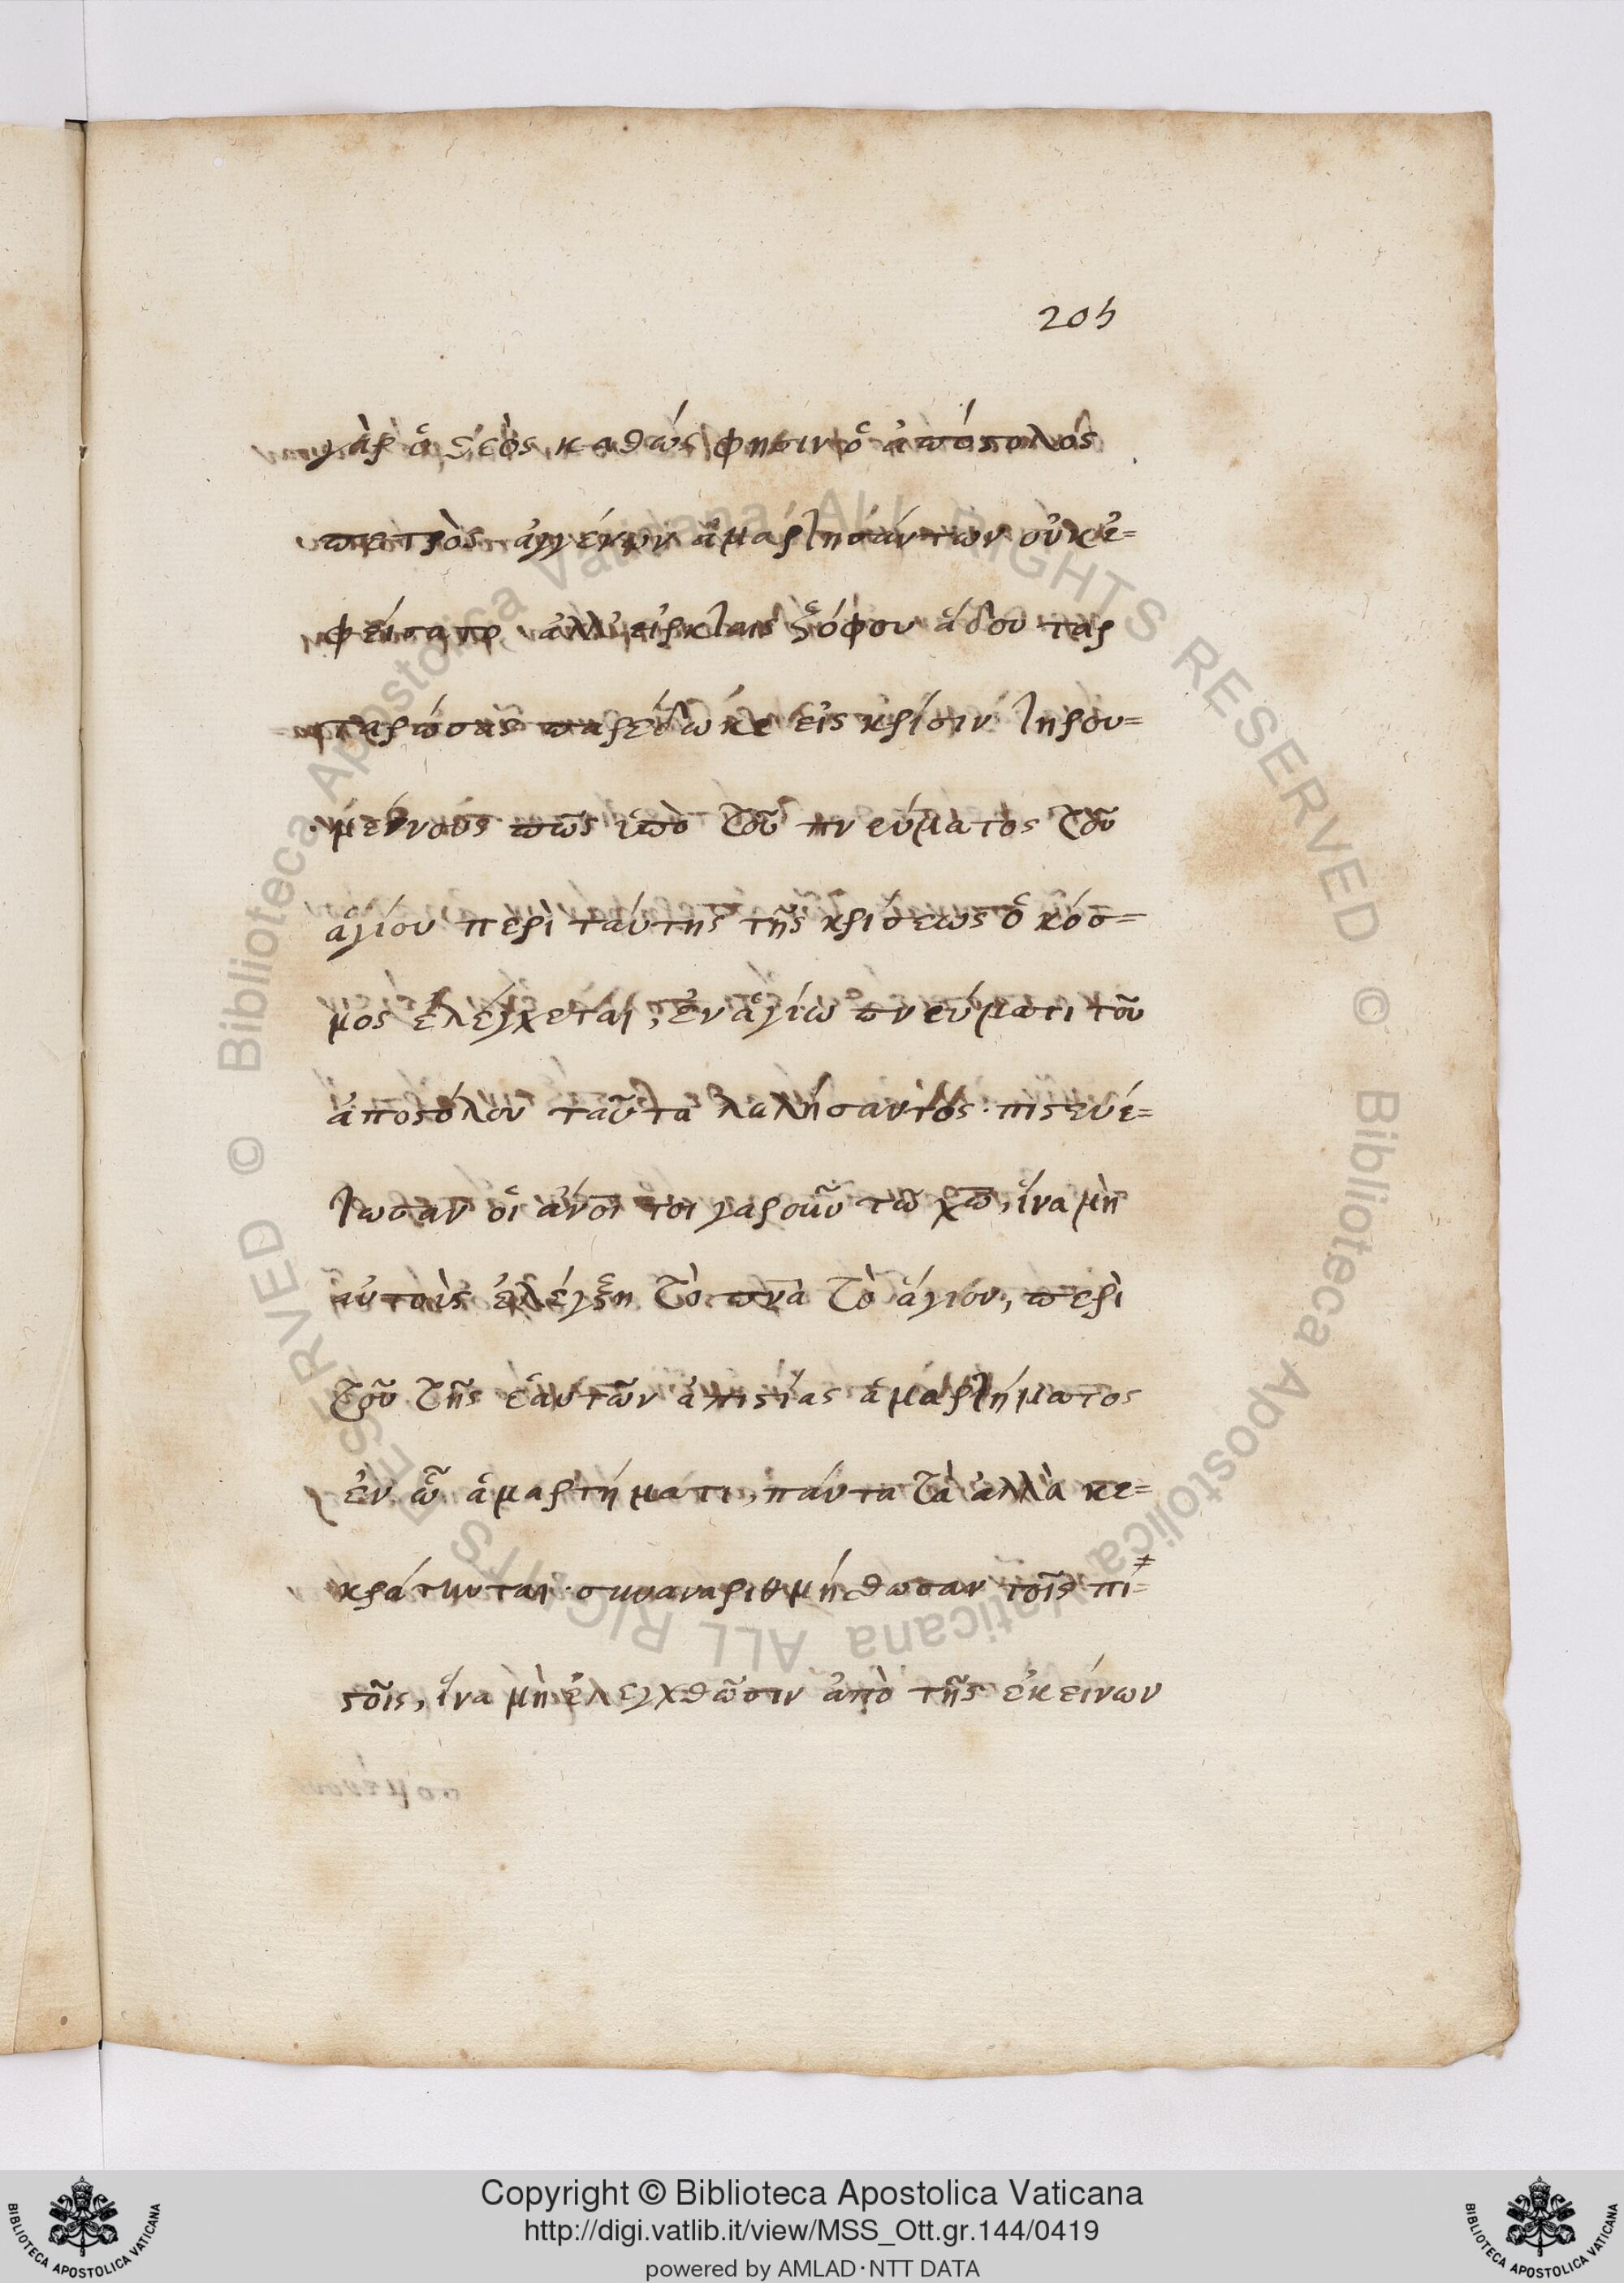 205
γὰρ ὁ θεὸς καθώς φησιν ὁ ἀπόστολος
πετρὸς ἀγγέλων ἁμαρτησάντων οὐκ ἐ=
φείσατο, ἀλλ' εἱρκταις ζόφου ἅδου ταρ
ταρώσας παρέδωκε εἰς κρίσιν τηρου=
μένους πῶς ὑπὸ τοῦ πνεύματος τοῦ
ἁγίου περὶ ταύτης τῆς κρίσεως ὁ κόσ=
μος ἐλέγχεται, ἐν ἁγίω πνεύματι τοῦ
ἀποστόλου ταῦτα λαλήσαντος. πιστευέ=
τωσαν οἱ ἄνοι τοιγαροῦν τῶ χῶ, ἵνα μὴ
αὐτοὶς ἐλέγξη τὸ πνα τὸ ἅγιον, περὶ
τοῦ τῆς ἑαυτῶν ἀπιστίας ἁμαρτήματος
ἐν ὧ ἁμαρτήματι, πάντα τὰ ἀλλὰ κε=
κράτηνται. συναναριθμήσθωσαν τοῖς πι=
στοῖς, ἵνα μὴ ἐλεγχθῶσιν ἀπὸ τῆς ἐκείνων
Copyright © Biblioteca Apostolica Vaticana
http://digi.vatlib.it/view/MSS_Ott.gr.144/0419
powered by AMLAD·NTT DATA
BIBLIOTECA APOSTOLICA VATICANA
BIBLIOTECA APOSTOLICA VATICANA
© Biblioteca Apostolica Vaticana ALL RIGHTS RESERVED © Biblioteca Apostolica Vaticana ALL RIGHTS RESERVED